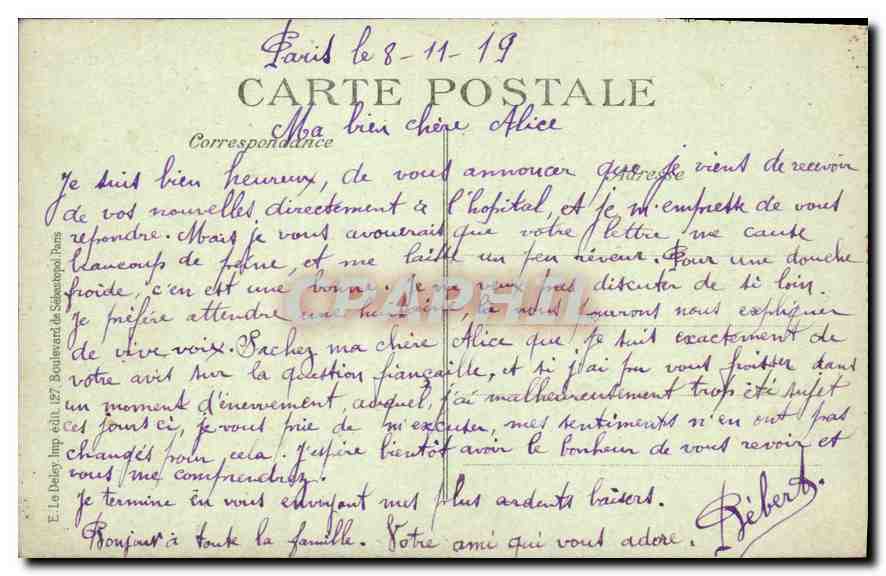 Paris le 8-11-19
CARTE POSTALE
Ma bien chère Alice
Correspondance
Adresse
Je suis bien heureux, de vous annoncer que je viens de recevoir
de vos nouvelles directement à l'hopital, et je m'empresse de vous
repondre. Mais je vous avouerais que votre lettre me cause
beaucoup de peine, et me laisse un peu rêveur. Pour une douche
froide, c'en est une bonne. Je ne veux pas discuter de si loin.
Je préfère attendre une huitaine, là nous pourrons nous expliquer
de vive voix. Sachez ma chère Alice que je suis exactement de
votre avis sur la question fiançaille, et si j'ai pu vous froisser dans
un moment d'énervement, auquel, j'ai malheureusement trop été sujet
ces jours ci, je vous prie de m'excuser, mes sentiments n'en ont pas
changés pour cela. J'espère bientôt avoir le bonheur de vous revoir et
vous me comprendrez.
Je termine en vous envoyant mes plus ardents baisers.
Bonjour à toute la famille. Votre ami qui vous adore. Bébert
E. Le Deley, Imp. édit. 127, Boulevard de Sébastopol, Paris
CPAPHIL